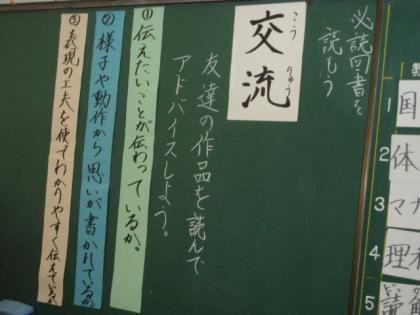 必読図書を
読もう
交流
こう
りゅう
友達の作品を読んで
アドバイスしよう。
①伝えたいことが伝わっているか。
②様子や動作から思いが書かれているか
③表現の工夫を使ってわかりやすく伝えているか
1 国
2 体
3 マナ
4 理
5 読